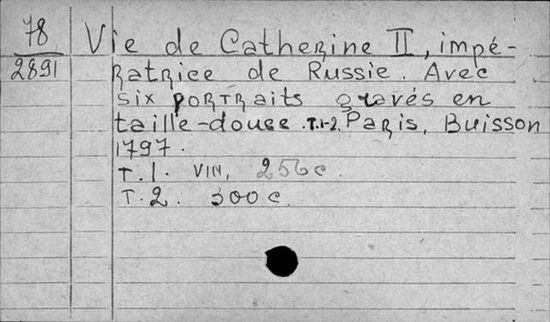 78
2891
Vie de Catherine II, impé-
ratrice de Russie. Avec
six portraits gravés en
taille-douce. T.1-2. Paris, Buisson
1797.
T. 1. VIII, 256 c.
T. 2. 300 c.